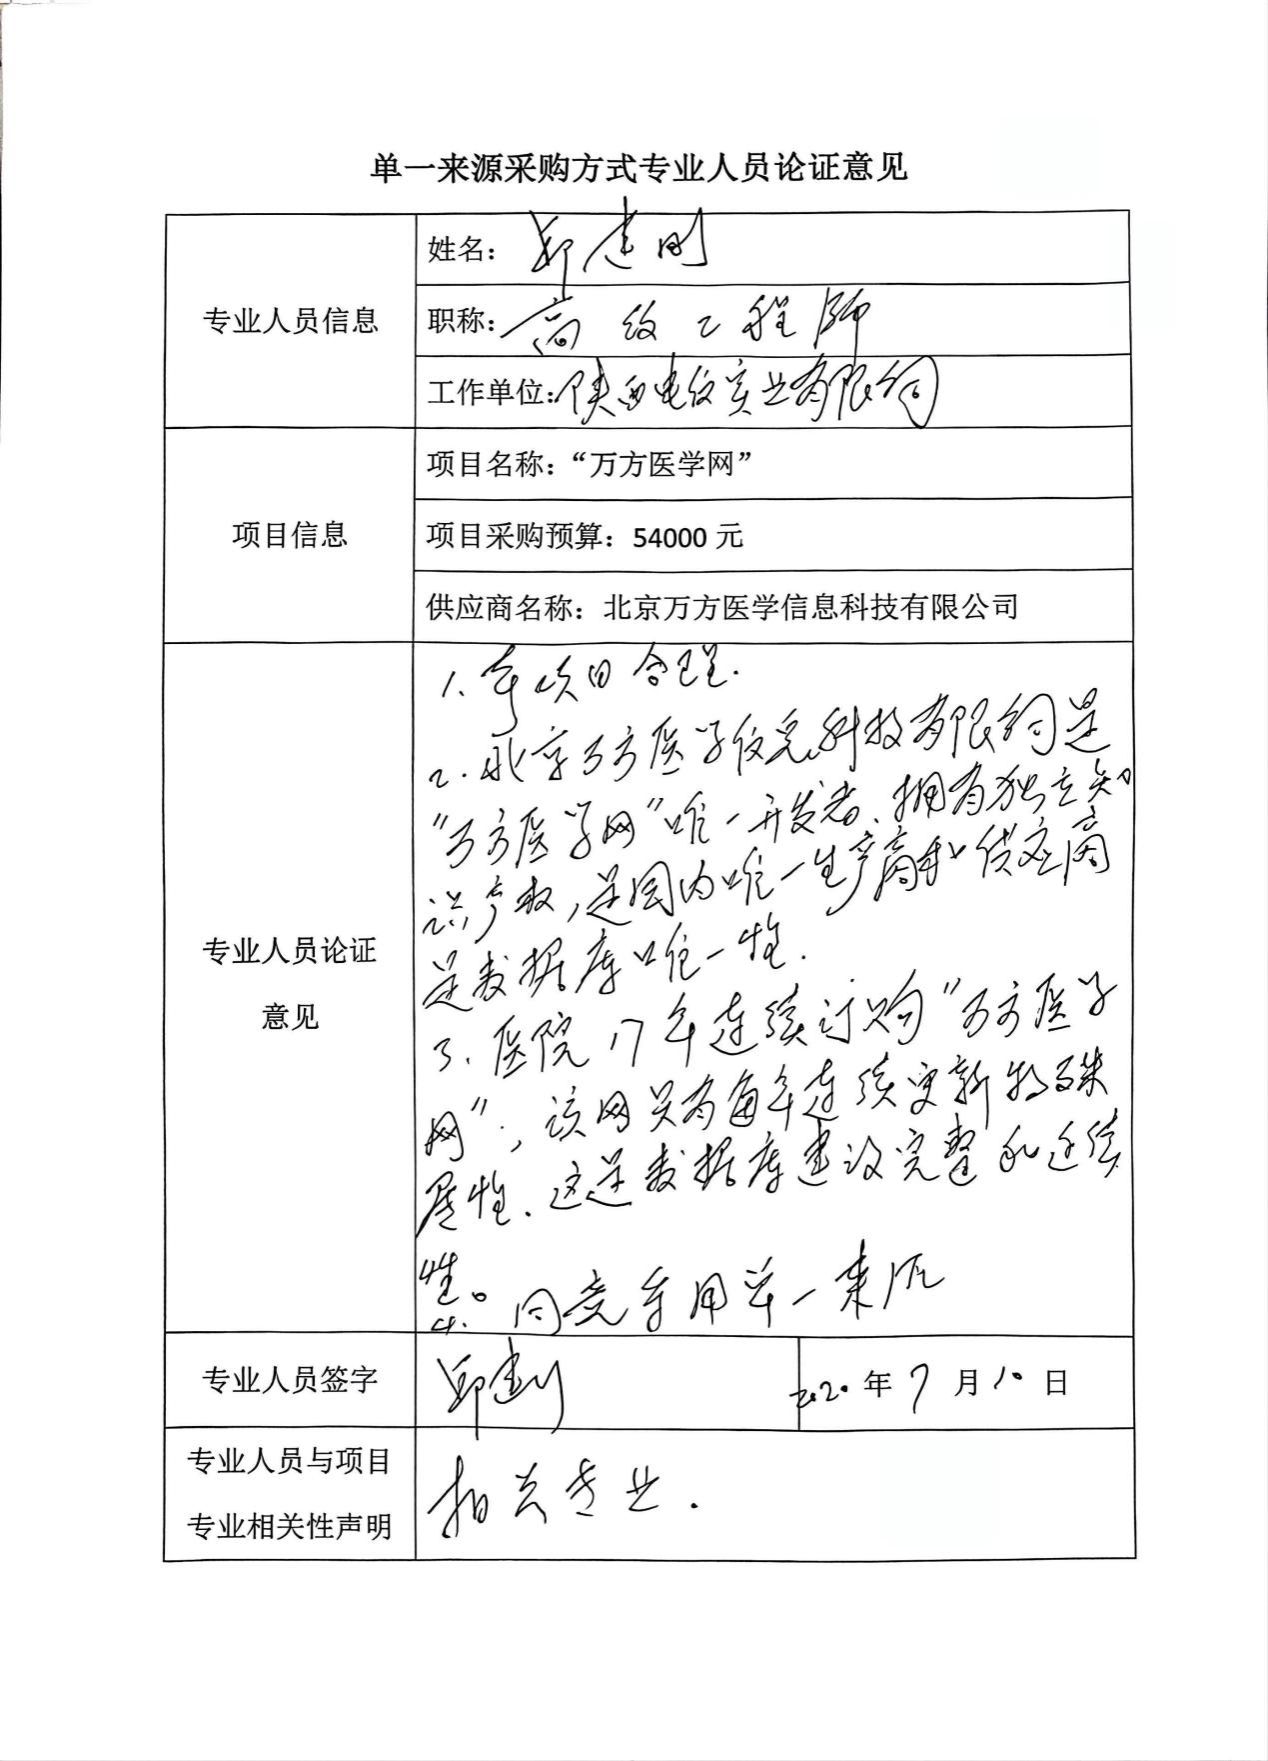 单一来源采购方式专业人员论证意见
专业人员信息
姓名：郭建刚
职称：高级工程师
工作单位：陕西电信实业有限公司
项目信息
项目名称：“万方医学网”
项目采购预算：54000 元
供应商名称：北京万方医学信息科技有限公司
专业人员论证
意见
1.本项目合理.
2.北京万方医学信息科技有限公司是
“万方医学网”唯一开发者、拥有独立知
识产权，是国内唯一生产商和供应商
是数据库唯一性.
3、医院17年连续订购“万方医学
网”，该网具有每年连续更新特殊
属性.这是数据库建设完整和连续
性。
4.同意采用单一来源
专业人员签字
2020年7月10日
专业人员与项目
专业相关性声明
相关专业.